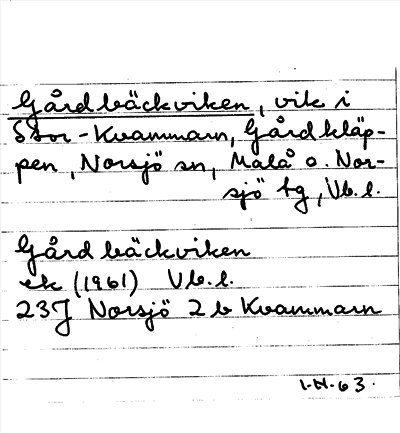 Gårdbäckviken, vik i
Stor-Kvammarn, Gårdkläp-
pen, Norsjö sn, Malå o. Nor-
sjö tg, Vb.l.
Gårdbäckviken
ek (1961) Vb.l.
23J Norsjö 2b Kvammarn
I.N.63.